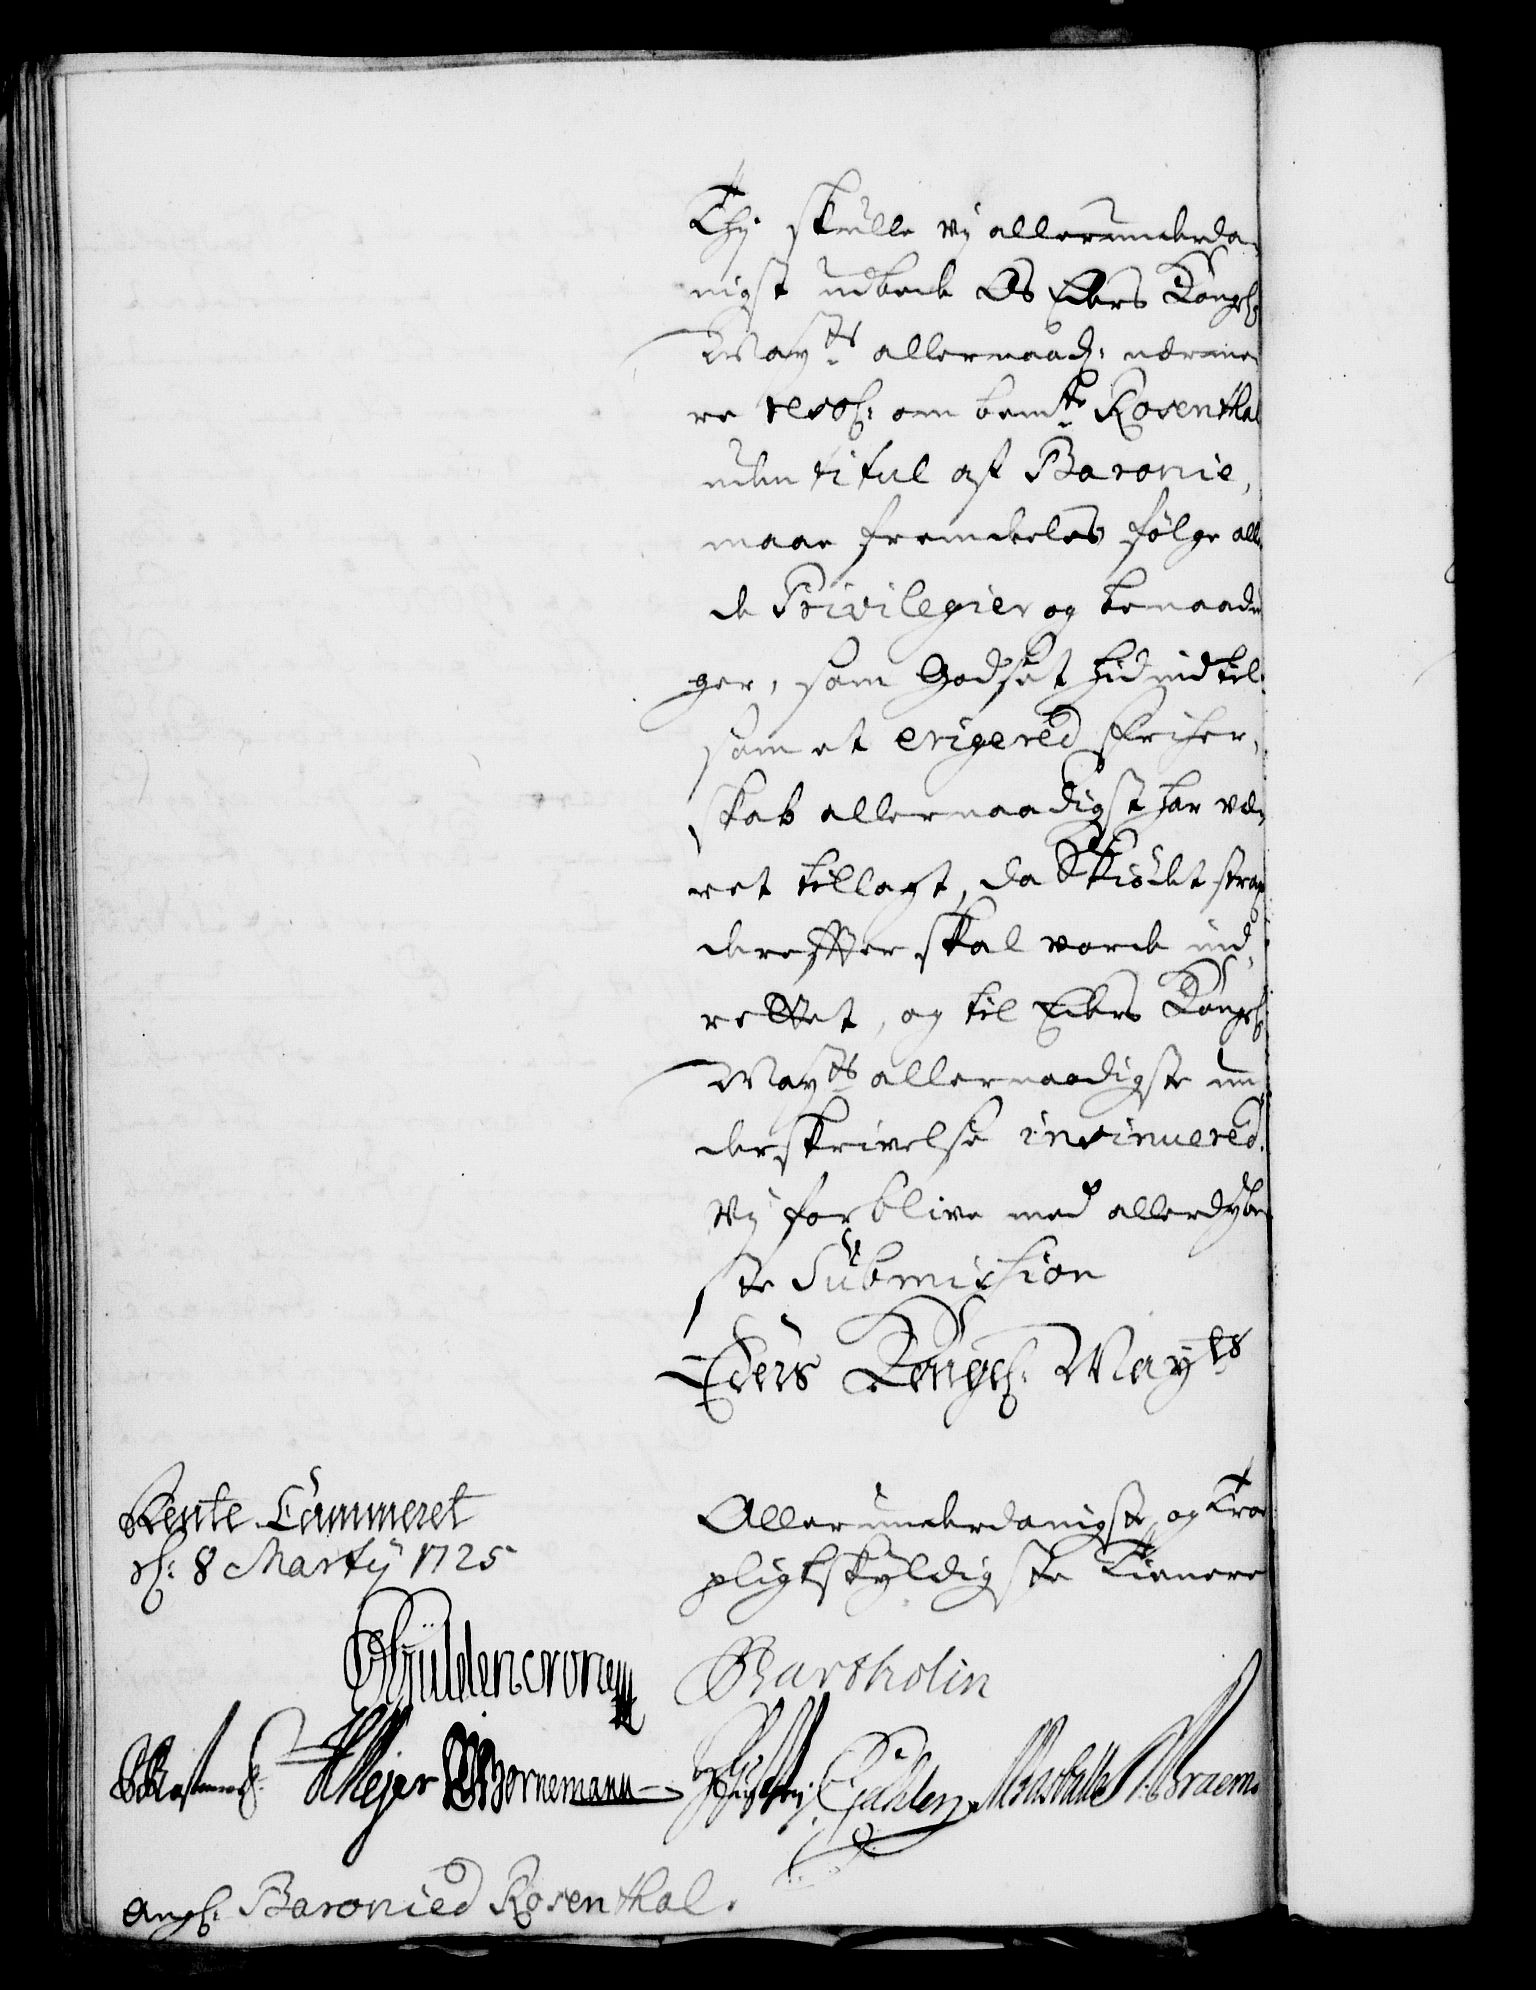 Thj skulle vj allerunderda-
nigst udbede Os Eders Kongl:
May:ts allernaad: nærme-
re resol: om bem:te Rosenthal
uden titul af Baronie,
maae fremdeeles følge alle
de Privilegier og benaadin
ger, som Godset hid indtil
som et erigered Friher-
skab allernaadigst har væ-
ret tillagt, da Skiødet strax
derefter skal vorde ind-
rettet, og til Eders Kongl:
May:ts allernaadigste un-
derskrivelse insinuered.
Vj forblive med allerdybe-
ste Submission
Eders Kongl: May:ts
Rente Cammeret
d: 8 Martij 1725
Allerunderdanigste og Troe
pligtskyldigste Tienere
Güldencrone
Bartholin
HMejer Bornemann
Braem
Ang: Baronied Rosenthal.